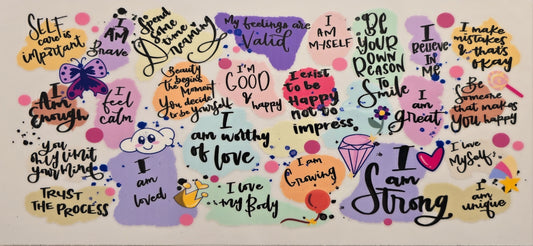 SELF
care is
important
I
AM
Brave
Spend
some
time
Dreaming
My feelings are
Valid
I
AM
MYSELF
BE
YOUR
OWN
REASON
TO
Smile
I
Believe
IN
ME
I make
mistakes
& that's
okay
I
Am
Enough
I
feel
calm
Beauty
begins the
Moment
You decide
to be yourself
I'M
GOOD
&
happy
I exist
to be
Happy
not to
impress
I
am
great
Be
Someone
that makes
you happy
You
only limit
your mind
I
am
loved
I
am worthy
of love
I am
Growing
I
am
Strong
I love
MySelf?
TRUST
THE PROCESS
I love
My Body
I
am
unique